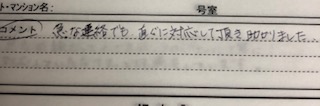 ト・マンション名: 号室
コメント 急な連絡でも すぐに対応して頂き助かりました…